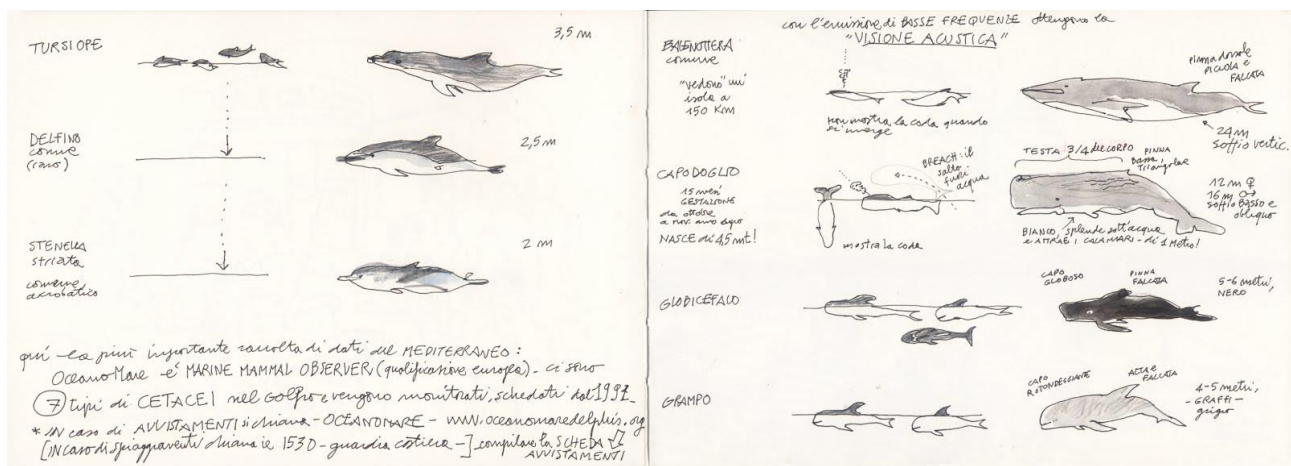 TURSIOPE
3,5 m
DELFINO
comune
(raro)
2,5 m
STENELLA
striata
comune
acrobatico
2 m
qui la più importante raccolta di dati del MEDITERRANEO:
OceanoMare è MARINE MAMMAL OBSERVER (qualificazione europea) - ci sono
7 tipi di CETACEI nel Golfo e vengono monitorati, schedati dal 1991
* IN caso di AVVISTAMENTI si chiama - OCEANOMARE - www.oceanomaredelphis.org
[IN caso di spiaggiamenti chiamare 1530 - guardia costiera -] compilare la SCHEDA
AVVISTAMENTI
con l'emissione di BASSE FREQUENZE ottengono la
"VISIONE ACUSTICA"
BALENOTTERA
comune
"vedono" un'
isola a
150 Km
non mostra la coda quando
si immerge
pinna dorsale
PICCOLA e
FALCATA
24 m
soffio vertic.
CAPODOGLIO
15 mesi
GESTAZIONE
da ottobre
a nov. anno dopo
NASCE di 4,5 mt!
BREACH: il
salto
fuori
acqua
mostra la coda
TESTA 3/4 del CORPO
PINNA
Bassa,
triangolare
12 m ♀
16 m ♂
soffio Basso e
obliquo
BIANCO, splende sott'acqua
e ATTIRA I CALAMARI - di 1 Metro!
GLOBICEFALO
CAPO
GLOBOSO
PINNA
FALCATA
5-6 metri,
NERO
GRAMPO
CAPO
ROTONDEGGIANTE
ALTA e
FALCATA
4-5 metri,
- GRAFFI -
grigio